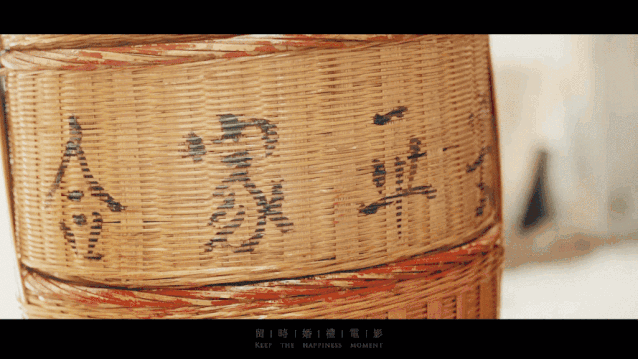 合家平
留|時|婚|禮|電|影
KEEP THE HAPPINESS MOMENT